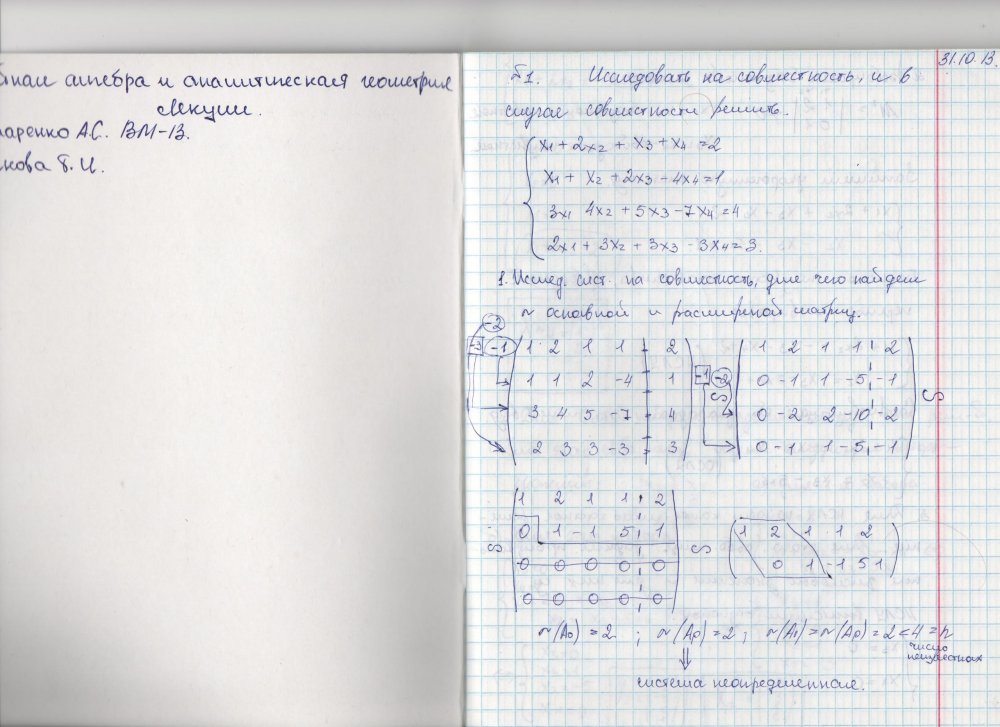 алгебра и аналитическая геометрия
Лекции.
аренко А.С. ВМ-13.
кова Т. И.
31.10.13.
Т1. Исследовать на совместность, и в
случае совместности решить.
x1 + 2x2 + x3 + x4 = 2
x1 + x2 + 2x3 - 4x4 = 1
3x1 4x2 + 5x3 - 7x4 = 4
2x1 + 3x2 + 3x3 - 3x4 = 3.
1. Исслед. сист. на совместность, для чего найдем
r основной и расширеной матриц.
-2
-3 -1 1 2 1 1 2 -1 -2 1 2 1 1 2
1 1 2 -4 1 0 -1 1 -5 -1
3 4 5 -7 4 0 -2 2 -10 -2
2 3 3 -3 3 0 -1 1 -5 -1
1 2 1 1 2
0 1 -1 5 1 1 2 1 1 2
0 0 0 0 0 0 1 -1 5 1
0 0 0 0 0
r(A0) = 2 ; r(Ap) = 2 ; r(A0) = r(Ap) = 2 < 4 = n
число
неизвестных
система неопределенная.